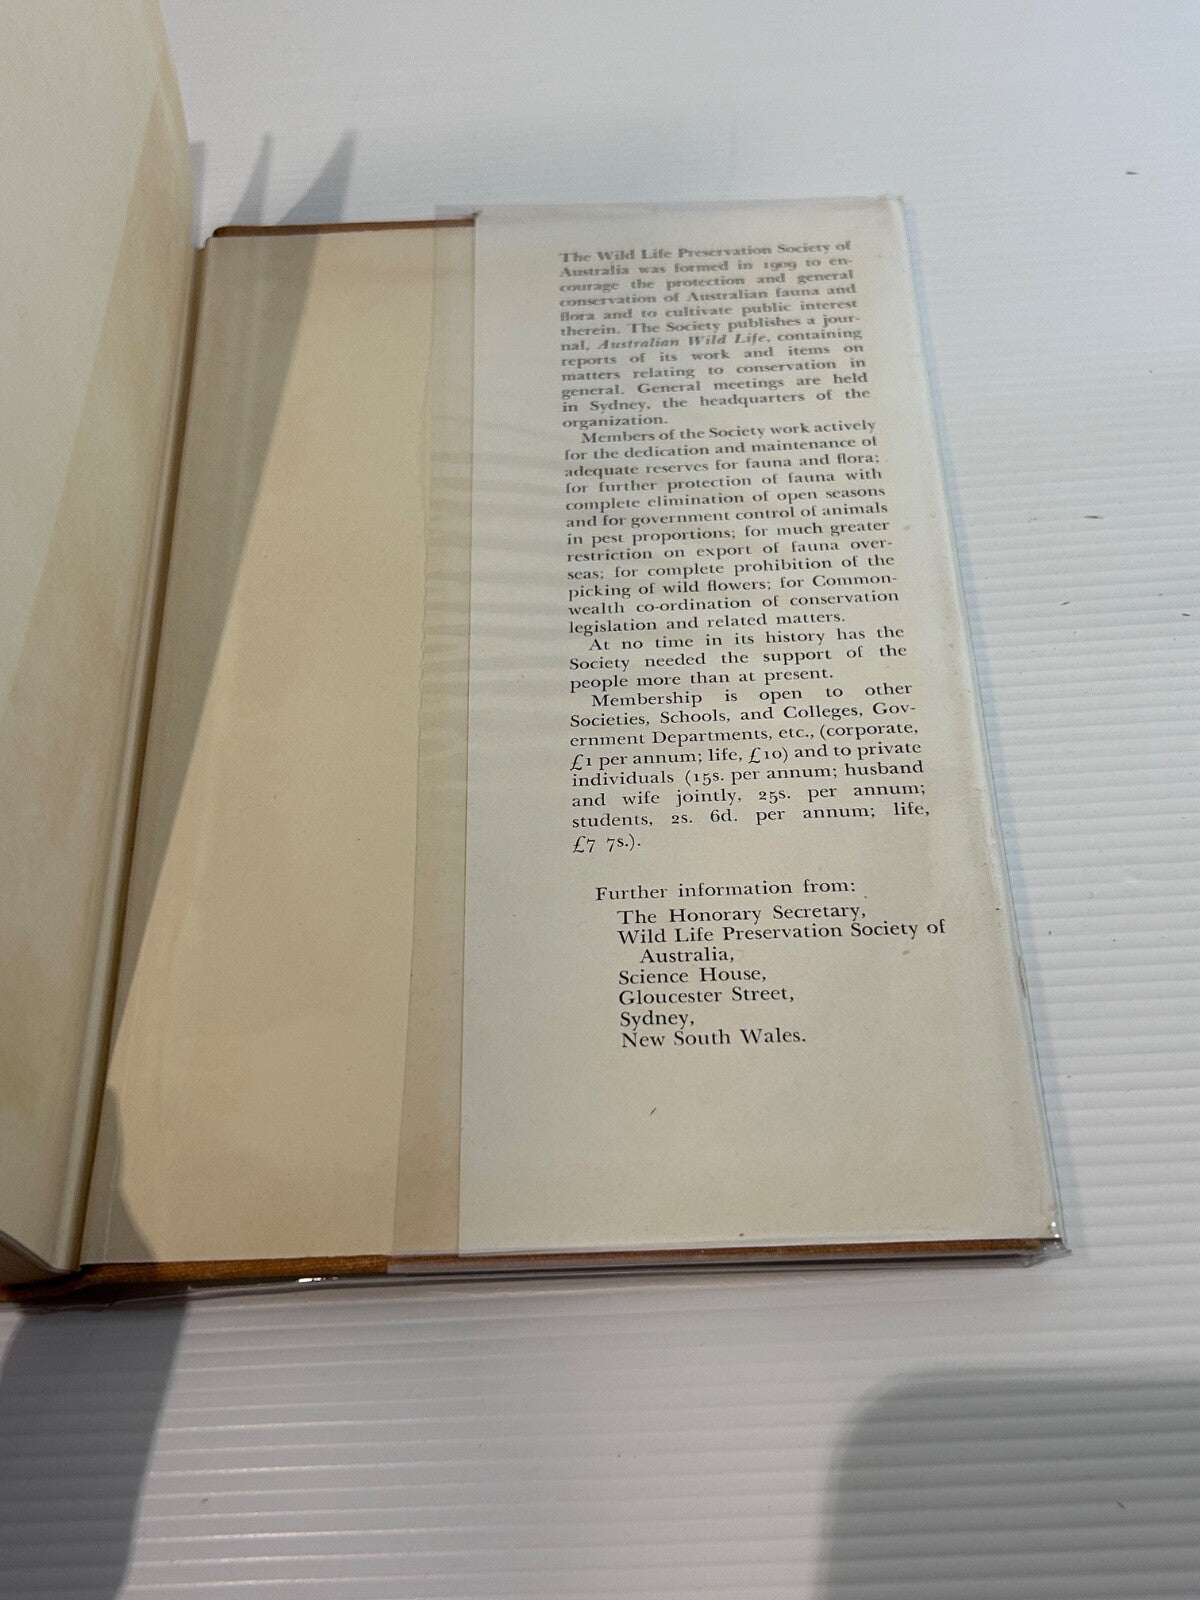 The Wild Life Preservation Society of
Australia was formed in 1909 to en-
courage the protection and general
conservation of Australian fauna and
flora and to cultivate public interest
therein. The Society publishes a jour-
nal, Australian Wild Life, containing
reports of its work and items on
matters relating to conservation in
general. General meetings are held
in Sydney, the headquarters of the
organization.
Members of the Society work actively
for the dedication and maintenance of
adequate reserves for fauna and flora;
for further protection of fauna with
complete elimination of open seasons
and for government control of animals
in pest proportions; for much greater
restriction on export of fauna over-
seas; for complete prohibition of the
picking of wild flowers; for Common-
wealth co-ordination of conservation
legislation and related matters.
At no time in its history has the
Society needed the support of the
people more than at present.
Membership is open to other
Societies, Schools, and Colleges, Gov-
ernment Departments, etc., (corporate,
£1 per annum; life, £10) and to private
individuals (15s. per annum; husband
and wife jointly, 25s. per annum;
students, 2s. 6d. per annum; life,
£7 7s.).
Further information from:
The Honorary Secretary,
Wild Life Preservation Society of
Australia,
Science House,
Gloucester Street,
Sydney,
New South Wales.